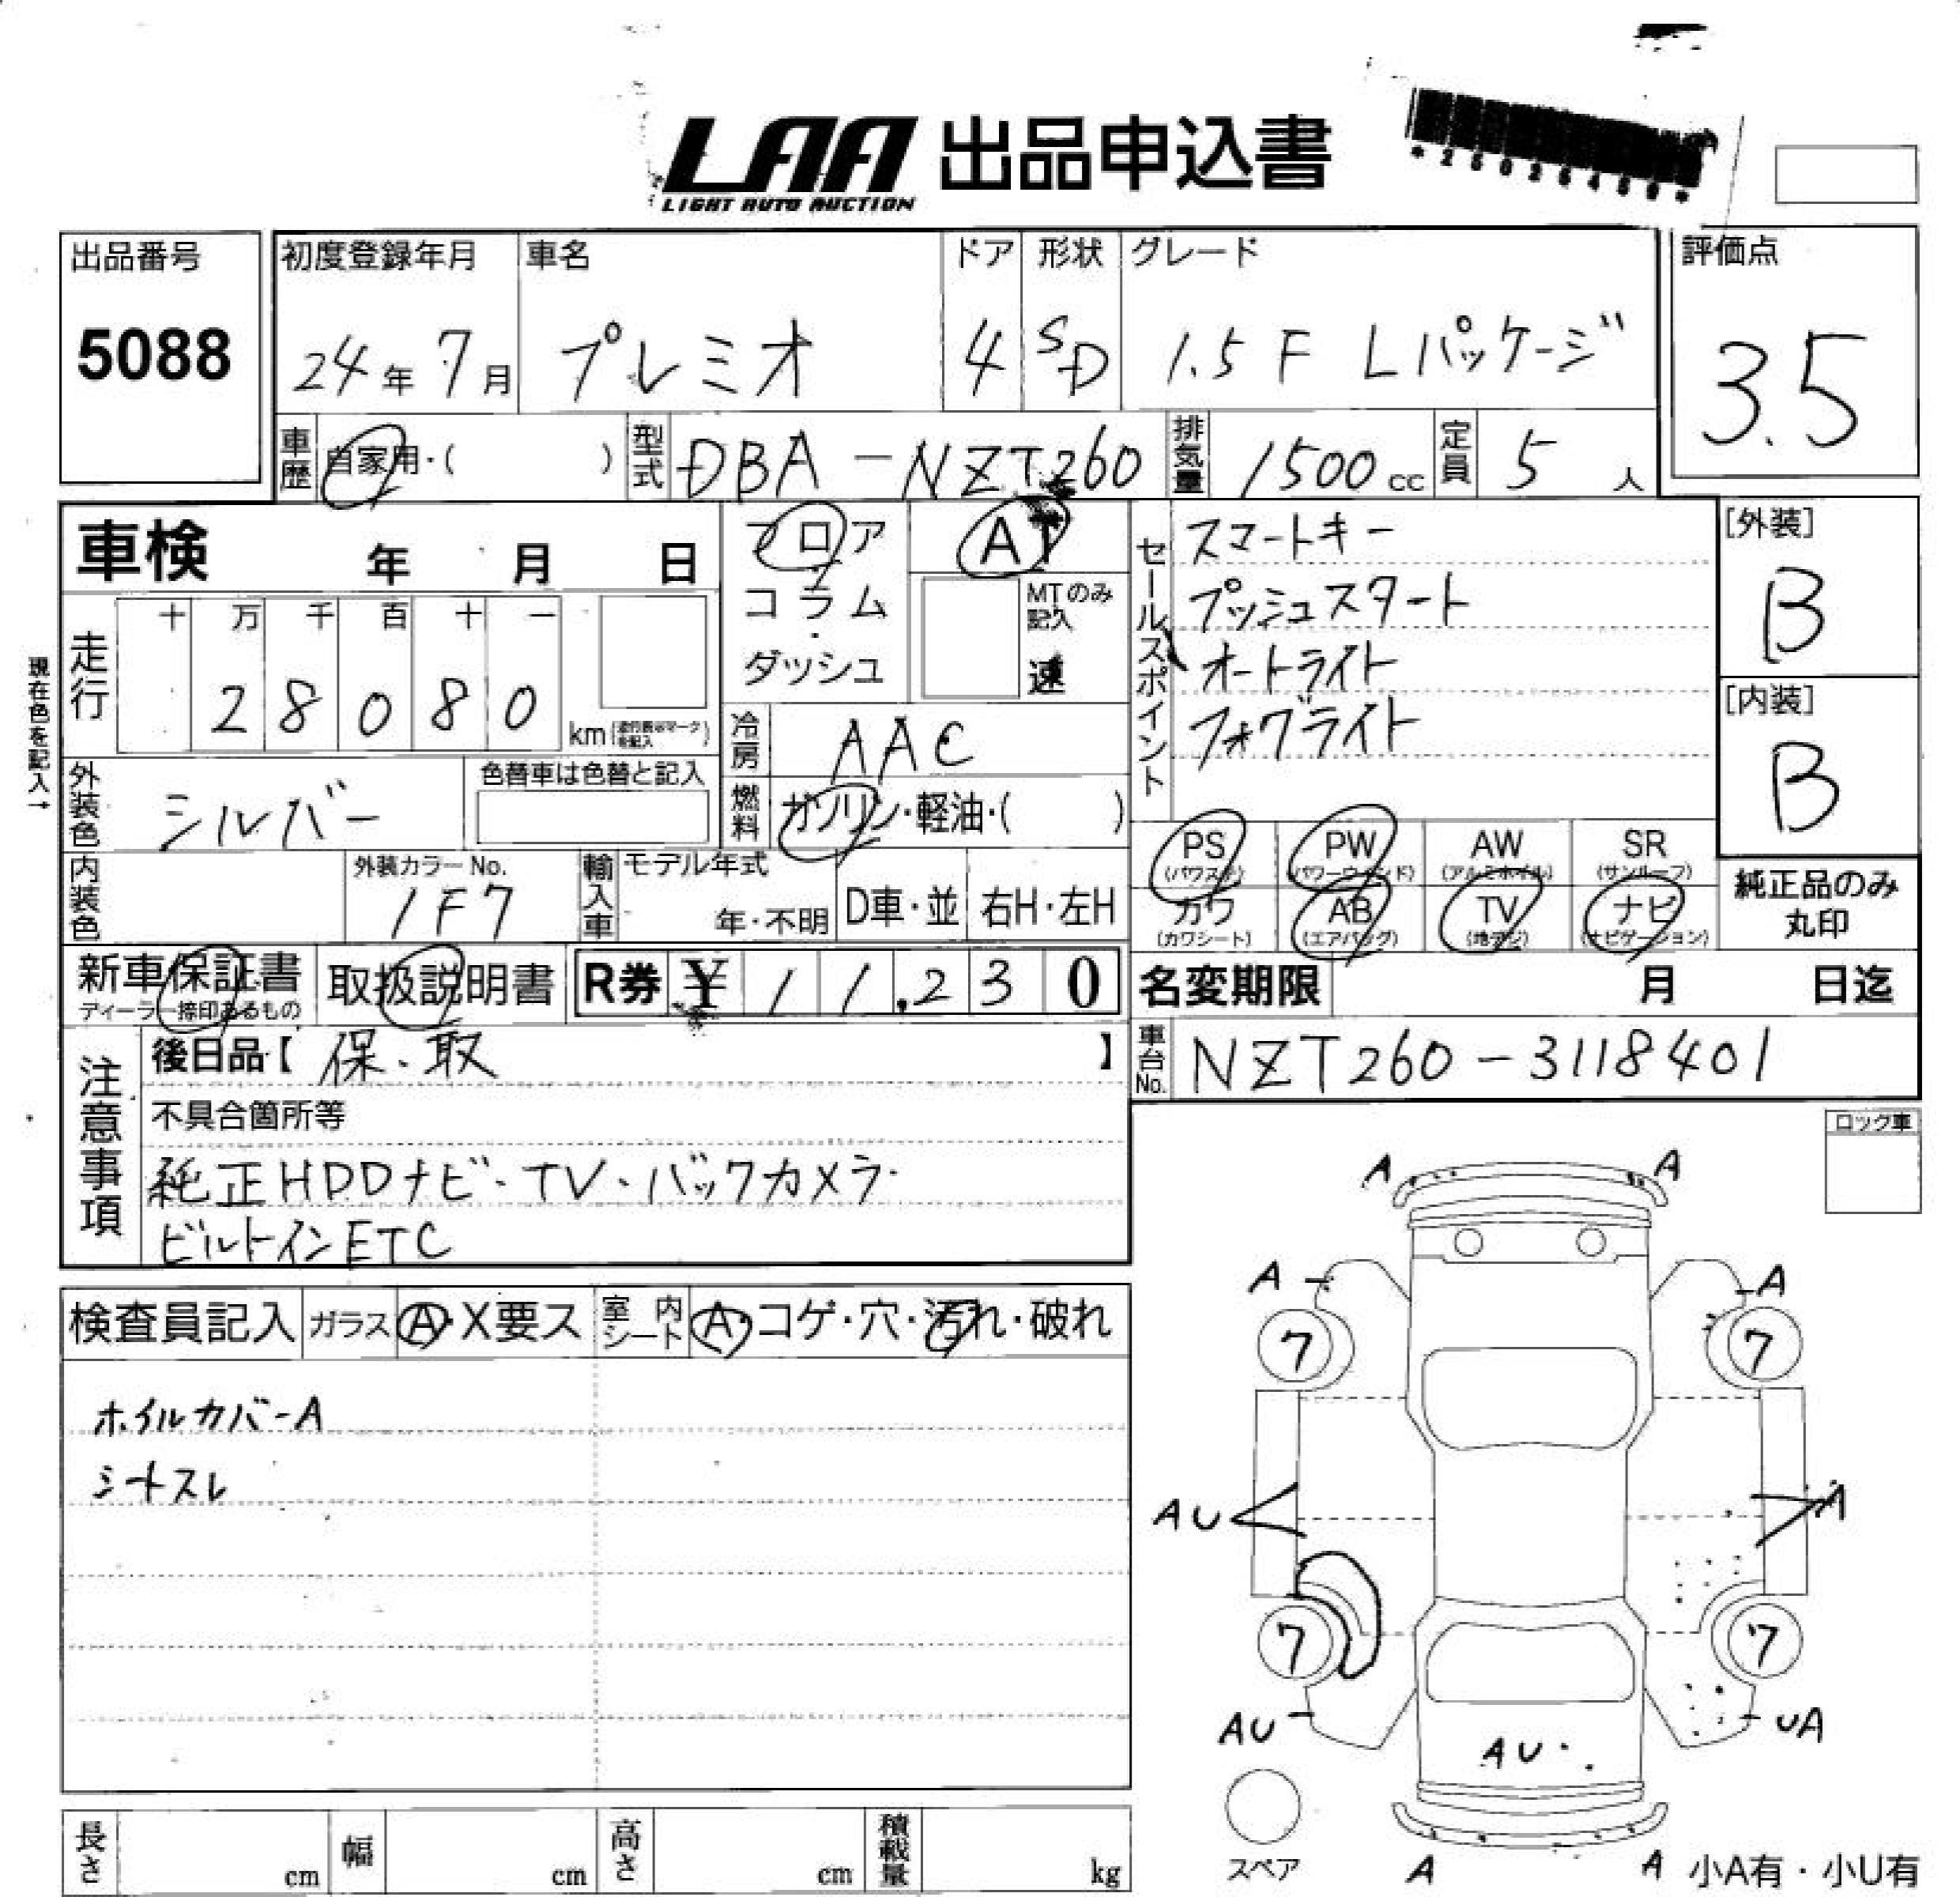 LAA 出品申込書
LIGHT AUTO AUCTION
出品番号 初度登録年月 車名 ドア 形状 グレード 評価点
5088 24年 7月 プレミオ 4 SD 1.5 F Lパッケージ 3.5
車歴 自家用・( ) 型式 DBA-NZT260 排気量 1500cc 定員 5人
車検 年 月 日
フロア
・
コラム
・
ダッシュ
AT
MTのみ記入
速
セールスポイント
スマートキー
プッシュスタート
オートライト
フォグライト
[外装]
B
[内装]
B
現在色を記入→
走行 十 万 千 百 十 一
28080
km
冷房 AAC
外装色 シルバー 色替車は色替と記入
燃料 ガソリン・軽油・( )
内装色 外装カラーNo. 1F7
輸入車 モデル年式 年・不明 D車・並 右H・左H
PS (パワステ) PW (パワーウィンド) AW (アルミホイル) SR (サンルーフ)
カワ (カワシート) AB (エアバッグ) TV (地デジ) ナビ (ナビゲーション)
純正品のみ
丸印
新車保証書 取扱説明書 R券 ¥ 11,230
ディーラー捺印あるもの
名変期限 月 日迄
車台No. NZT260-3118401
注意事項
後日品【 保・取 】
不具合箇所等
純正HDDナビ・TV・バックカメラ・
ビルトインETC
ロック車
検査員記入 ガラス A・X要ス 室内シート A・コゲ・穴・汚れ・破れ
ホイルカバーA
シートスレ
A A
A A
7 7
AU A
7 7
AU UA
AU
スペア
A A
小A有・小U有
長さ cm 幅 cm 高さ cm 積載量 kg